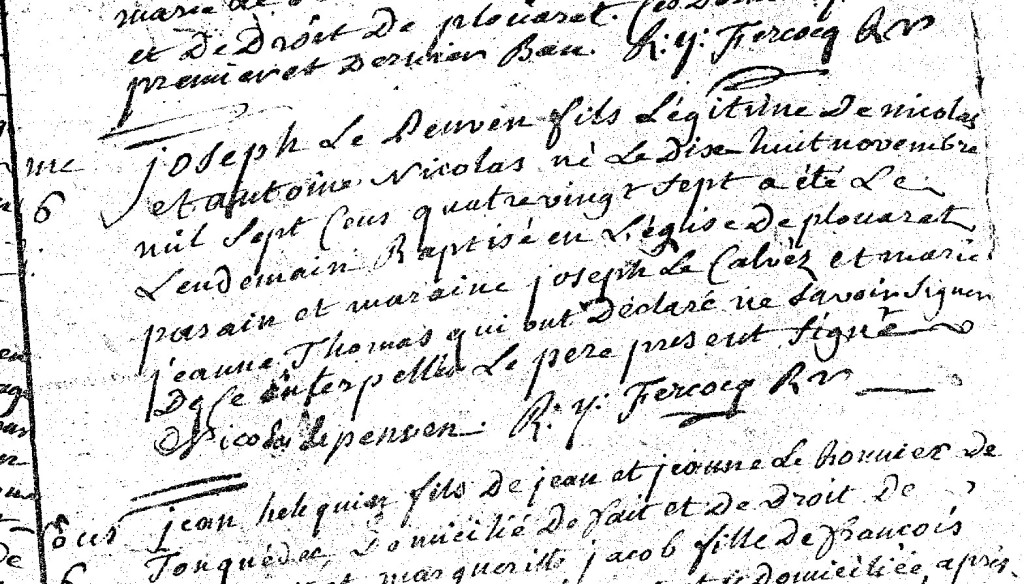 marie
et De Droit De plouaret.
premier et Dernier Ban. R: y: Fercocq Rr
joseph Le Penven fils Légitime De nicolas
me et antoine Nicolas né Le Dise huit novembre
6 mil sept Cens quatrevingt sept a été Le
Lendemain Baptisé en L'église De plouaret
parain et maraine joseph Le Calvèz et marie
jeanne Thomas qui ont Déclaré ne savoir signer
De ce interpellés Le pere present signe
Nicolas lepenven. R: y: Fercocq Rr
jean helequin fils De jean et jeanne Le bonnier De
Tonquédec, Domicilié De fait et De Droit De
6 margueritte jacob fille De françois
Domiciliée, après